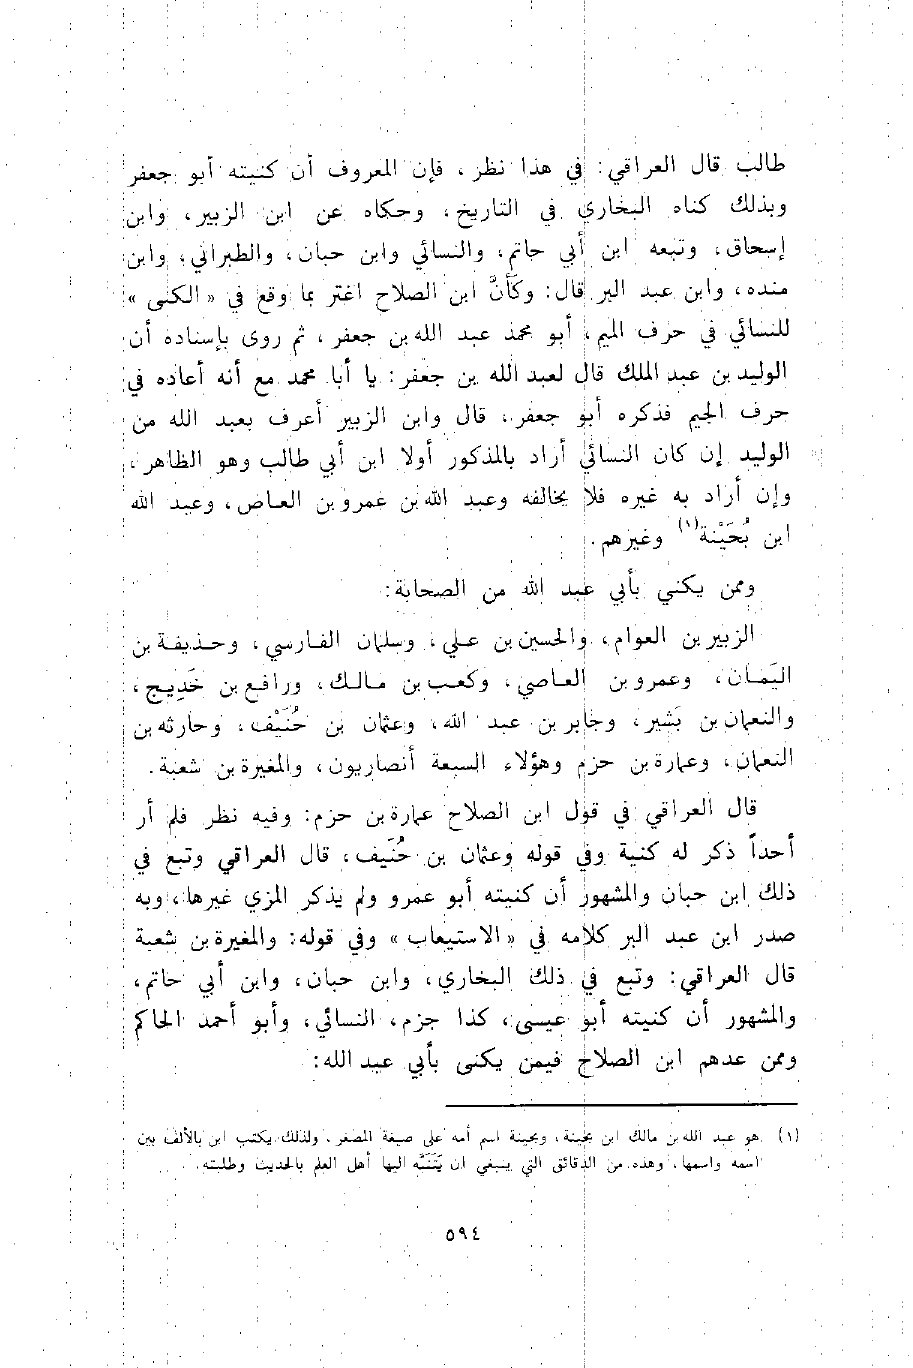 طالب قال العراقي: في هذا نظر، فإن المعروف أن كنيته أبو جعفر
وبذلك كناه البخاري في التاريخ، وحكاه عن ابن الزبير، وابن
إسحاق، وتبعه ابن أبي حاتم، والنسائي وابن حبان، والطبراني، وابن
منده، وابن عبد البر قال: وكأنَّ ابن الصلاح اغتر بما وقع في «الكنى»
للنسائي في حرف الميم، أبو محمد عبد الله بن جعفر، ثم روى بإسناده أن
الوليد بن عبد الملك قال لعبد الله بن جعفر: يا أبا محمد مع أنه أعاده في
حرف الجيم فذكره أبو جعفر، قال وابن الزبير أعرف بعبد الله من
الوليد إن كان النسائي أراد بالمذكور أولا ابن أبي طالب وهو الظاهر،
وإن أراد به غيره فلا يخالفه وعبد الله بن عمرو بن العاص، وعبد الله
ابن بُحَيْنة(١) وغيرهم.
وممن يكني بأبي عبد الله من الصحابة:
الزبير بن العوام، والحسين بن علي، وسلمان الفارسي، وحذيفة بن
اليَمان، وعمرو بن العاصي، وكعب بن مالك، ورافع بن خَدِيج،
والنعمان بن بَشير، وجابر بن عبد الله، وعثمان بن حُنَيْف، وحارثه بن
النعمان، وعمارة بن حزم وهؤلاء السبعة أنصاريون، والمغيرة بن شعبة.
قال العراقي في قول ابن الصلاح عمارة بن حزم: وفيه نظر فلم أر
أحداً ذكر له كنية وفي قوله وعثمان بن حُنَيف، قال العراقي وتبع في
ذلك ابن حبان والمشهور أن كنيته أبو عمرو ولم يذكر المزي غيرها، وبه
صدر ابن عبد البر كلامه في «الاستيعاب» وفي قوله: والمغيرة بن شعبة
قال العراقي: وتبع في ذلك البخاري، وابن حبان، وابن أبي حاتم،
والمشهور أن كنيته أبو عيسى، كذا جزم، النسائي، وأبو أحمد الحاكم
وممن عدهم ابن الصلاح فيمن يكنى بأبي عبد الله:
(١) هو عبد الله بن مالك ابن بحينة، وبحينة اسم أمه على صيغة المصغر، ولذلك يكتب ابن بالألف بين
اسمه واسمها، وهذه من الدقائق التي ينبغي ان يَتَنَبَّه اليها أهل العلم بالحديث وطلبته.
٥٩٤